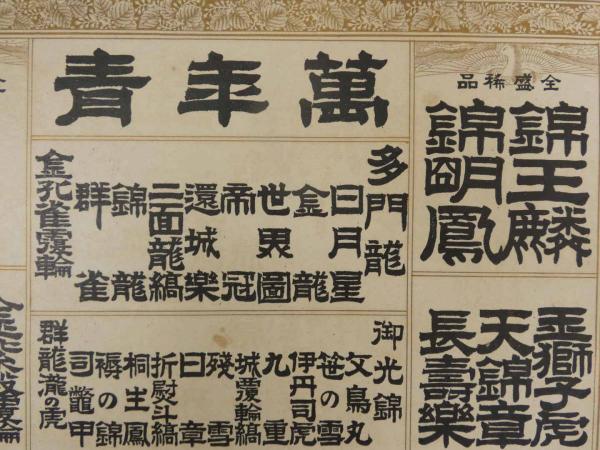 全盛稀品
錦王麟
錦明鳳
玉獅子虎
天錦章
長壽樂
萬年青
多門龍
日月星
金龍
世界圖
帝冠
還城樂
二面龍縞
錦龍
群雀
金孔雀覆輪
御光錦
文鳥丸
笹の雪
伊丹司虎
九重
城覆輪縞
殘雪
日章
折熨斗縞
桐生鳳
褥の錦
司鼈甲
群龍瀧の虎